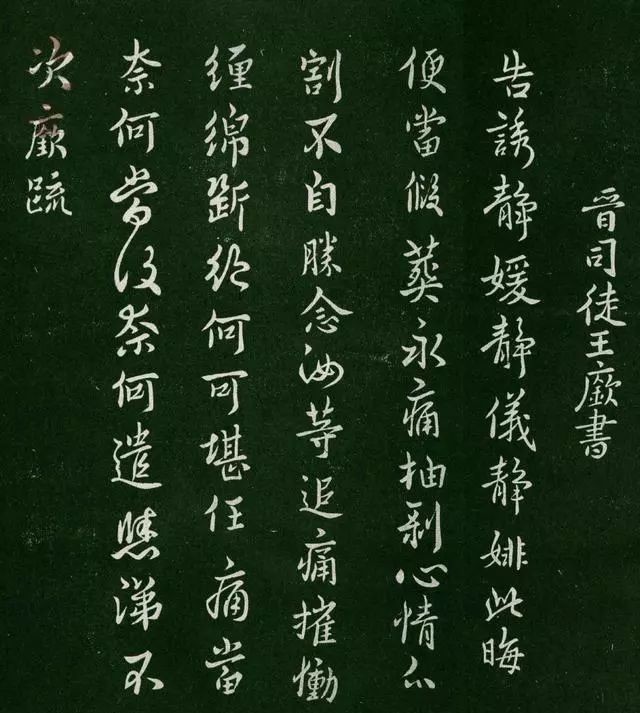 晉司徒王廞書
告誘靜媛靜儀靜姚此晦
便當假葬永痛抽剝心情分
割不自勝念汝等追痛摧慟
纏綿斷絕何可堪任痛當
奈何當復奈何遣悲涕不
次廞疏